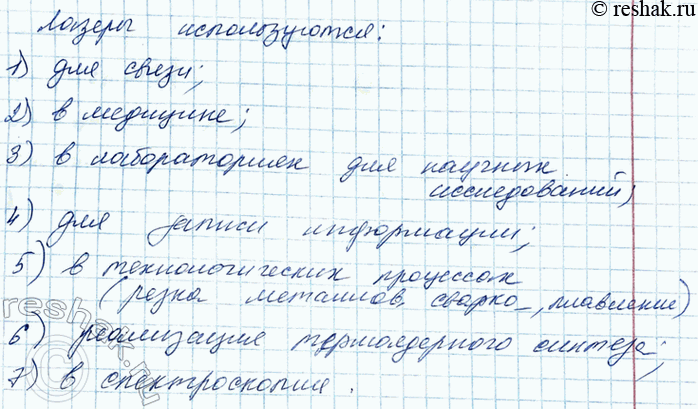 © reshak.ru
Лазеры используются:
1) для связи;
2) в медицине;
3) в лабораториях для научных
исследований;
4) для записи информации;
5) в технологических процессах
(резка металлов, сварка, плавление)
6) реализация термоядерного синтеза;
7) в спектроскопии.
reshak.ru